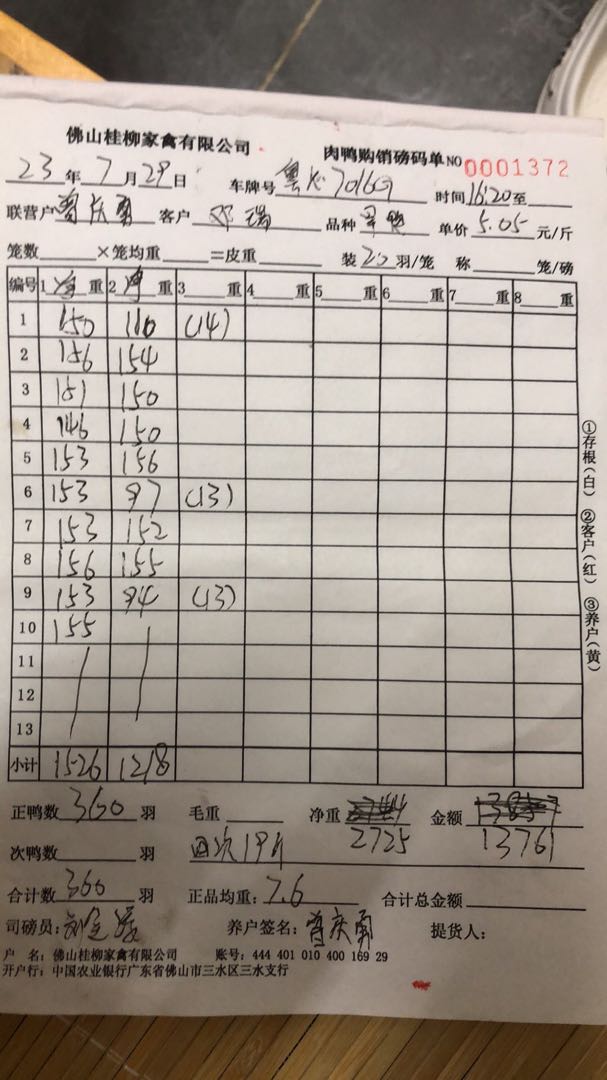 佛山桂柳家禽有限公司 肉鸭购销磅码单 NO 0001372
23 年 7 月 29 日 车牌号 时间 16:20 至
联营户 曾庆勇 客户 邓瑞 品种 单价 5.05 元/斤
笼数 ×笼均重 =皮重 装 20 羽/笼 称 笼/磅
编号 1 净 重 2 净 重 3 重 4 重 5 重 6 重 7 重 8 重
1 150 110 (14)
2 156 154
3 151 150
4 146 150
5 153 156
6 153 97 (13)
7 153 152
8 156 155
9 153 94 (13)
10 155
11
12
13
小计 1526 1218
正鸭数 360 羽 毛重 净重 2725 金额 13761
次鸭数 羽 四次19斤
合计数 360 羽 正品均重: 7.6 合计总金额
司磅员: 养户签名: 曾庆勇 提货人:
户 名: 佛山桂柳家禽有限公司 账号: 444 401 010 400 169 29
开户行: 中国农业银行广东省佛山市三水区三水支行
①存根(白) ②客户(红) ③养户(黄)